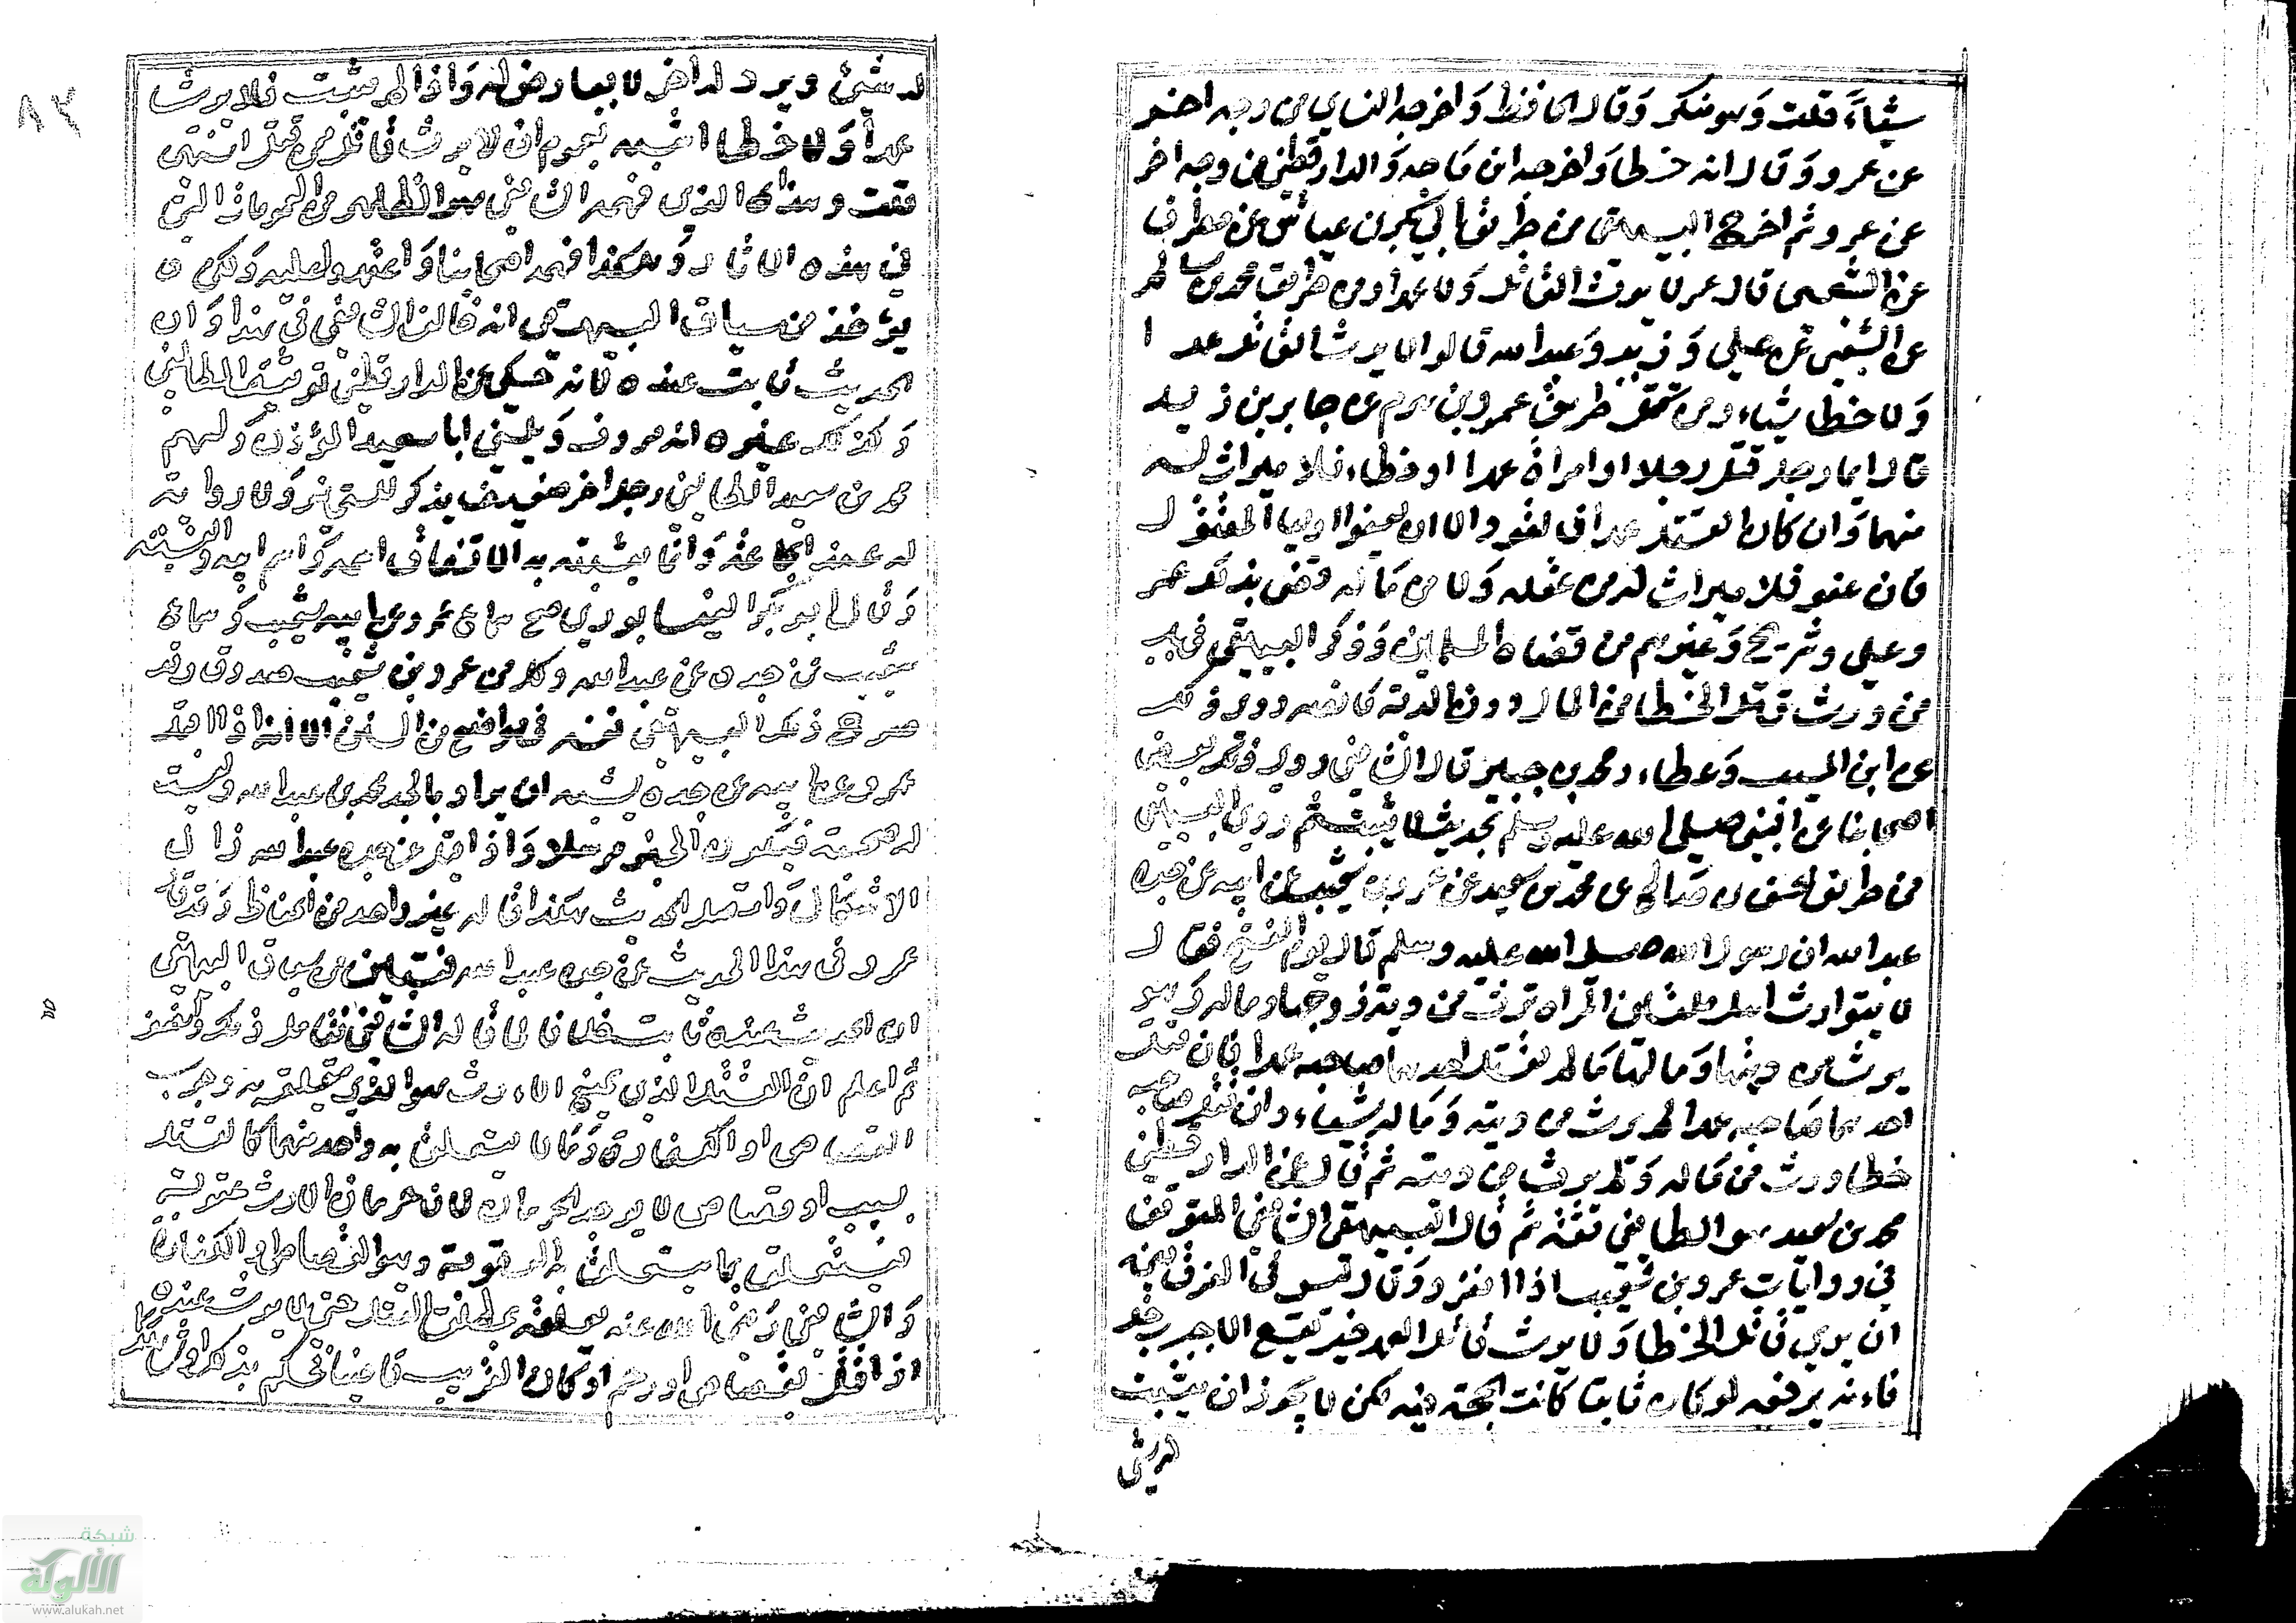 شيئاً قلت وهو منكر وقال الحافظ واخرجه النساي من وجه اخر
عن عمرو وقال انه خطا واخرجه ابن ماجه والدارقطني من وجه اخر
عن عمرو ثم اخرج البيهقي من طريق ابي بكر بن عياش عن مطرف
عن الشعبي قال عمر لا يرث القاتل ولا عمدا ومن طريق محمد بن سالم
عن الشعبي عن علي وزيد وعبد الله قالوا لا يرث القاتل عمدا
ولا خطا شياء ومن طريق عمرو بن هرم عن جابر بن زيد
قال ايما رجل قتل رجلا او امراة عمدا او خطاء فلا ميراث له
منهما وان كان القتل عمدا فالقود الا ان يعفوا اوليا المقتول
فان عفو فلا ميراث له من عقله ولا من ماله قضى بذلك عمر
وعلي وشريح وغيرهم من قضاة المسلمين وذكر البيهقي في باب
من ورث قتل الخطا من المال دون الدية ما نصه روى ذلك
عن ابن المسيب وعطاء ومحمد بن جبير قال الشافعي وروى ذلك بعض
اصحابنا عن النبي صلى الله عليه وسلم بحديث لا يثبت ثم روى البيهقي
من طريق الحسن بن صالح عن محمد بن سعيد عن عمرو بن شعيب عن ابيه عن جده
عبد الله ان رسول الله صلى الله عليه وسلم قام يوم الفتح فقال
لا يتوارث اهل ملتين المراة ترث من دية زوجها وماله وهو
يرث من ديتها ومالها ما لم يقتل احدهما صاحبه عمدا فان قتل
احدهما صاحبه عمدا لم يرث من ديته وماله شياء وان قتل صاحبه
خطا ورث من ماله ولم يرث من ديته ثم قال عن الدارقطني
محمد بن سعيد هو الطائفي ثقة ثم قال البيهقي الشافعي المتوقف
في روايات عمرو بن شعيب اذا انفرد وقال ليس في الفرق بين
ان يرث قاتل الخطا ولا يرث قاتل العمد خبر يتبع الا خبر رجل
فانه يرفعه لو كان ثابتا كانت الحجة فيه لكن لا يجوز ان يثبت
له شي
٨٢
له شيئ ويرد له اخر لا يعارض له واذا لم يثبت فلا يرث
عمداً ولا خطا اشبه بعموم ان لا يرث قاتل من قتل انتهى
قلت وهذا الذي فهمه الشافعي هو الظاهر من العموم الذي
في هذه الاثار وهكذا فهم اصحابنا واعتمدوا عليه ولكن
يؤخذ من سياق البيهقي انه خالف الشافعي في هذا وان
الحديث ثابت عنده لانه حكى عن الدارقطني توثيق الطائفي
وكذلك غيره انه معروف ويكنى ابا سعيد المؤذن ولهم
محمد بن سعيد الطائفي رجل اخر ضعيف يذكر للتمييز ولا رواية
له عند الجماعة وانما يشبه به الاتفاق اسمه واسم ابيه والنسبة
وقال ابو بكر النيسابوري صح سماع عمرو عن ابيه شعيب وسماع
شعيب من جده عن عبد الله وكل من عمرو بن شعيب صدوق وقد
صرح بذلك البيهقي نفسه في مواضع من السنن الا انه اذا قيل
عمرو عن ابيه عن جده يشبه ان يراد بالجد محمد بن عبد الله وليست
له صحبة فيكون الخبر مرسلا واذا قيل عن جده عبد الله زال
الاشكال واتصل الحديث هكذا قاله غير واحد من الحفاظ وقد قال
عمرو في هذا الحديث عن جده عبد الله فتبين من سياق البيهقي
ان الحديث عنده ثابت خلافا لما قاله الشافعي
ثم اعلم ان القتل الذي يمنع الارث هو الذي يتعلق به وجوب
القصاص او الكفارة وما لا يتعلق به واحد منهما كالقتل
بسبب او قصاص لا يوجب الحرمان لان حرمان الارث عقوبة
فيتعلق بما يتعلق به العقوبة وهو القصاص او الكفارة
والشافعي رضي الله عنه يعلقه بمطلق القتل حتى لا يرث عنده
اذا قتل بقصاص او رجم او كان القريب قاضيا فحكم بذلك او شاهدا
شبكة
الألوكة
www.alukah.net